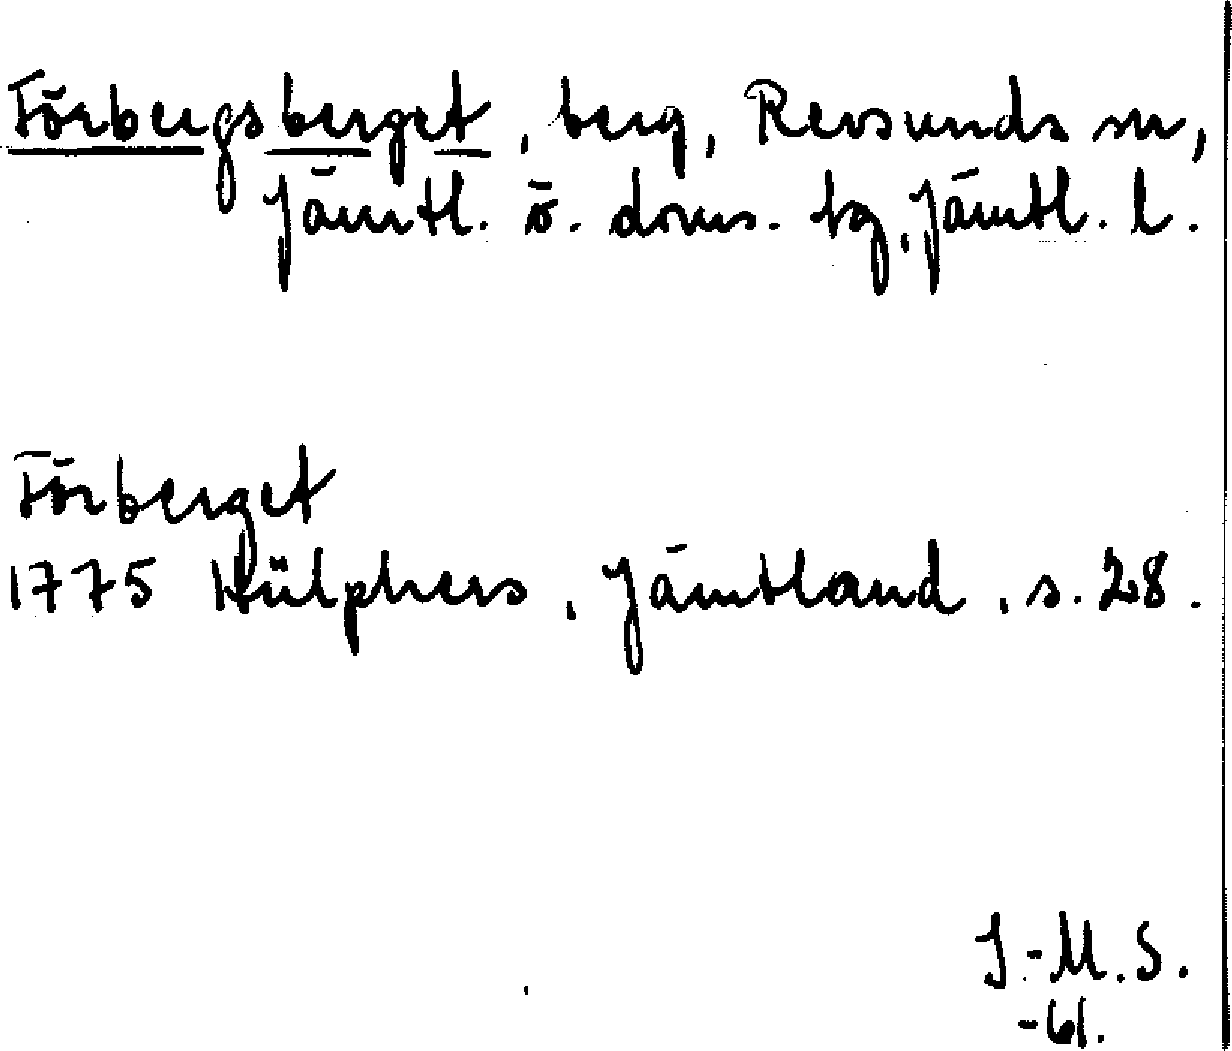 Förbergsberget, berg, Revsunds sn,
Jämtl. ö. doms. tg, Jämtl. l.
Förberget
1775 Hülphers, Jämtland, s. 28.
J-M.S.
-61.